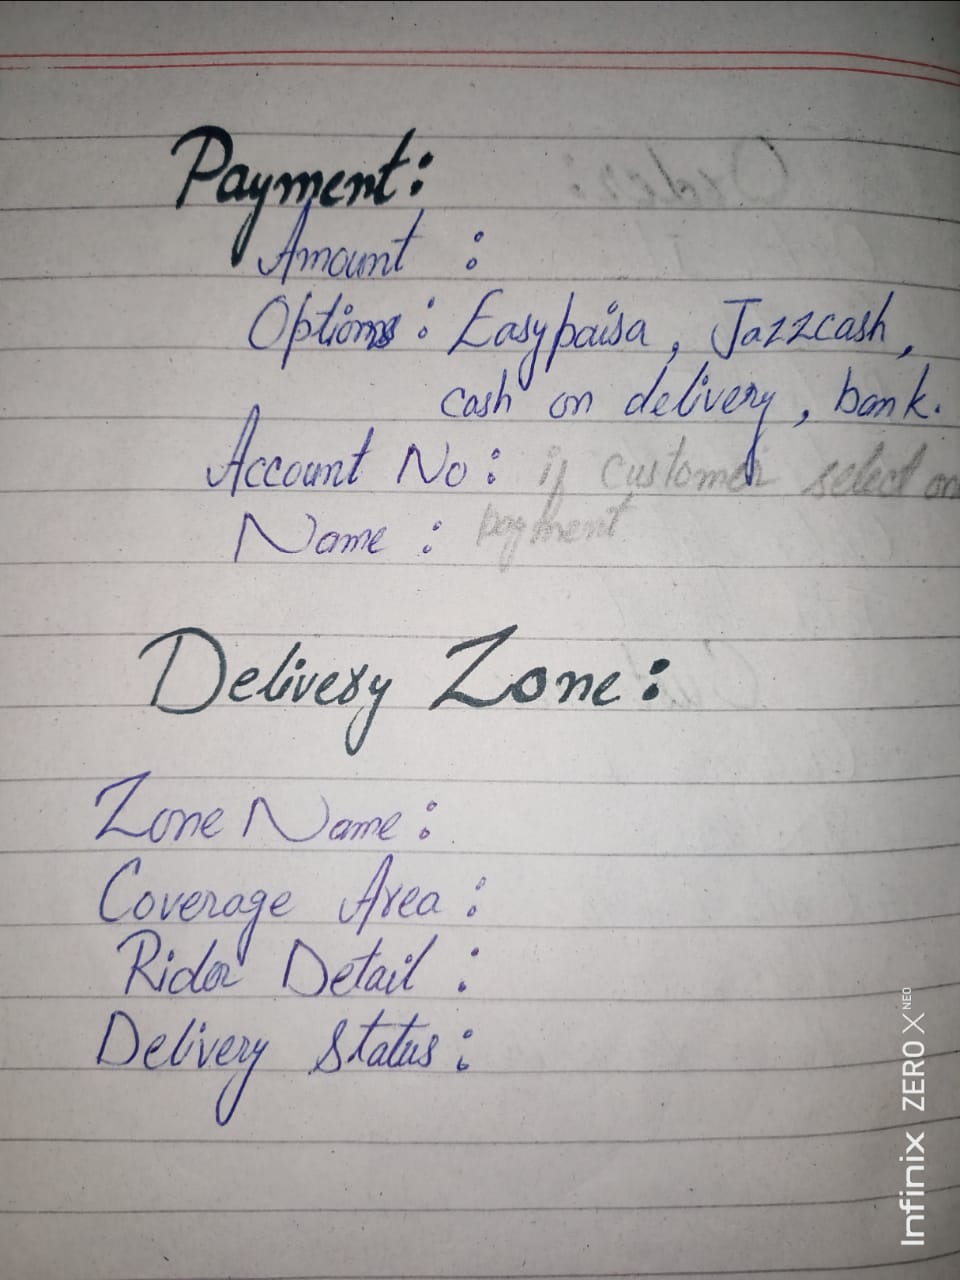 Payment:
Amount :
Options: Easypaisa, Jazzcash,
cash on delivery, bank.
Account No: if customer select on
Name : payment
Delivery Zone:
Zone Name:
Coverage Area:
Rider Detail :
Delivery Status:
Infinix ZERO X NEO